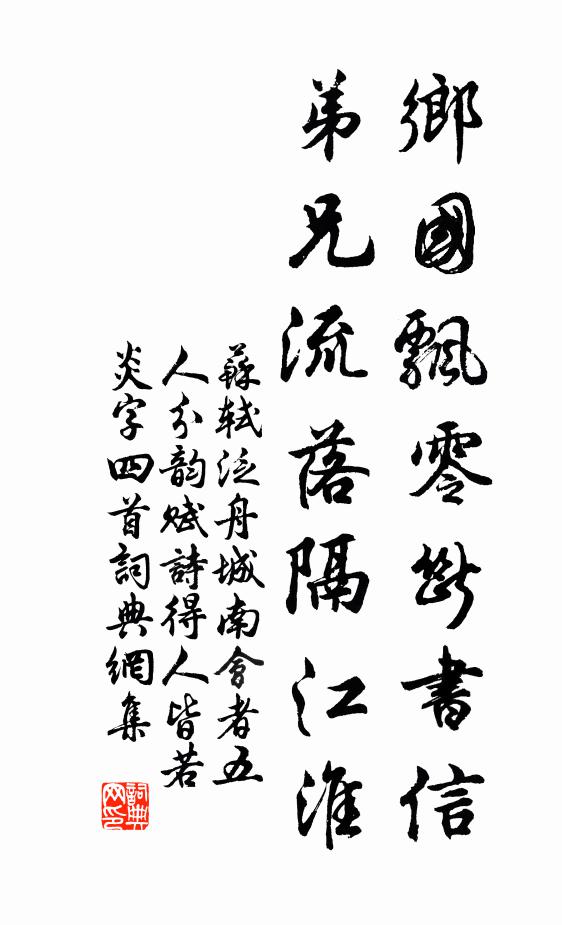 鄉國飄零斷書信
弟兄流落隔江淮
蘇軾泛舟城南會者五
人分韵賦詩得人皆若
炎字四首詞典網集
詞典网印